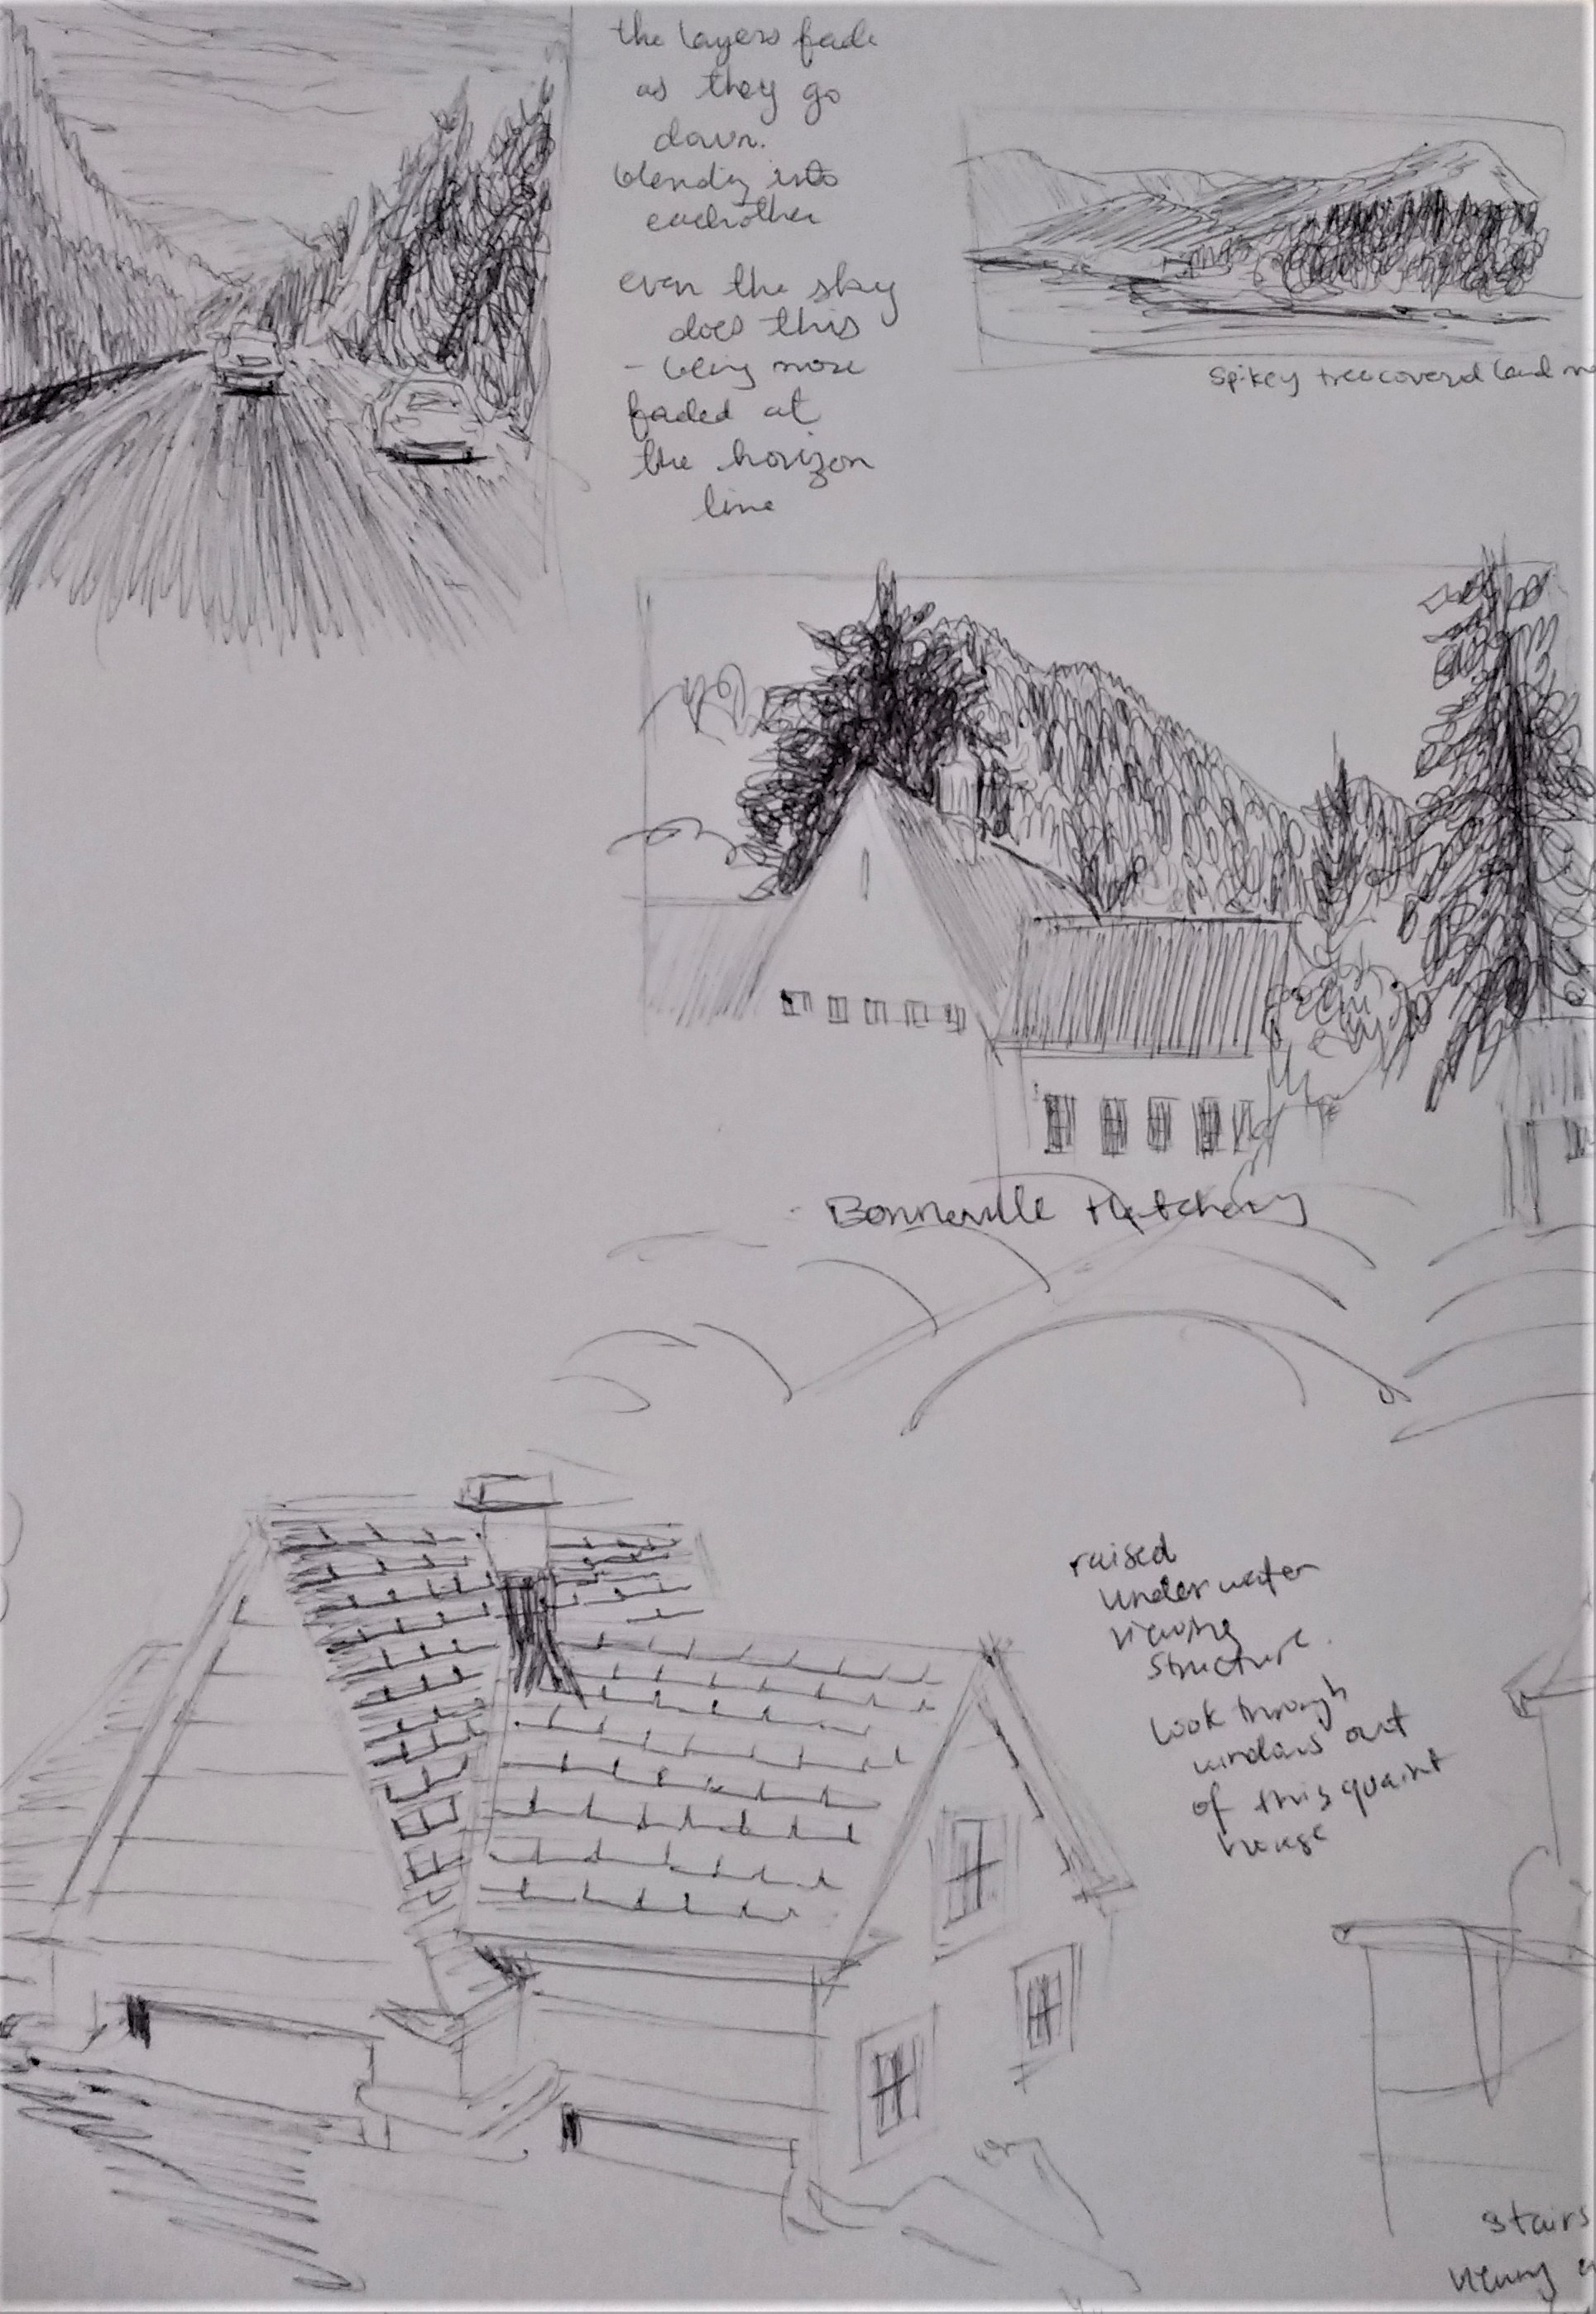 the layers fade
as they go
down.
blending into
eachother
even the sky
does this
- being more
faded at
the horizon
line
Spikey treecovered land
Bonneville Hatchery
raised
underwater
viewing
structure.
look through
windows out
of this quaint
house
stairs